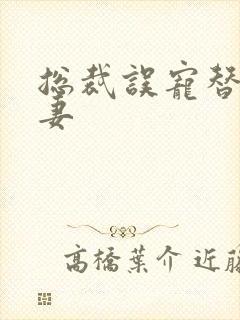 総裁誤寵替
妻
高橋葉介 近藤